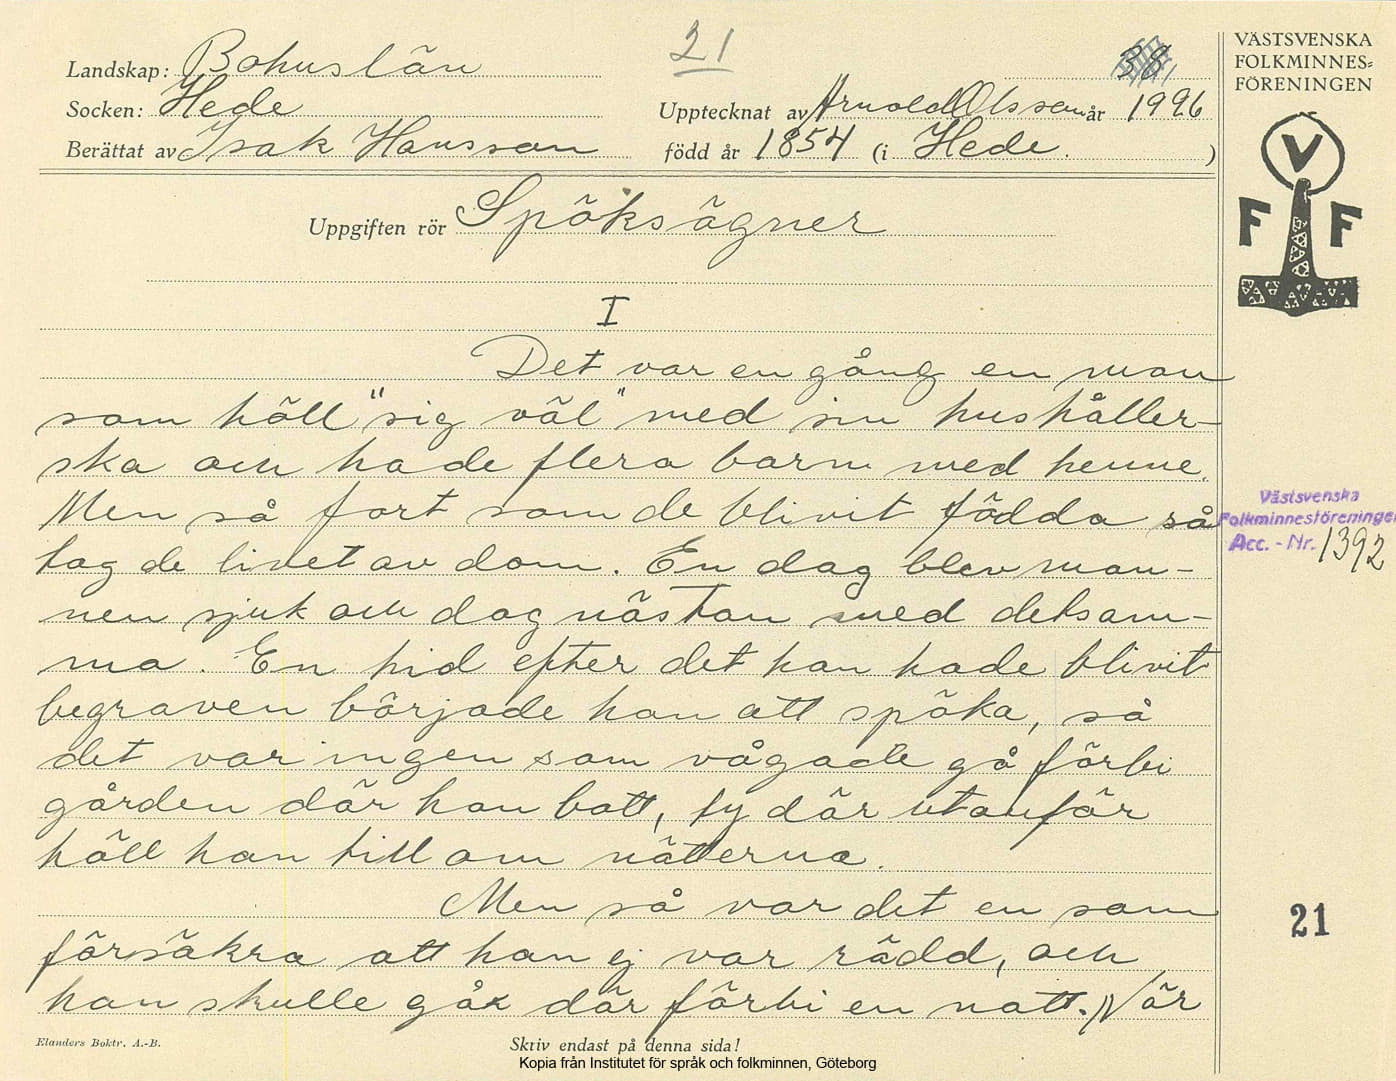 21
38
Landskap: Bohuslän
Socken: Hede
Upptecknat av Arnold Olsson år 1926
Berättat av Isak Hansson född år 1854 (i Hede. )
Uppgiften rör Spöksägner
I
Det var en gång en man
som höll "sig väl" med sin hushåller-
ska och hade flera barn med henne.
Men så fort som de blivit födda så
tog de livet av dom. En dag blev man-
nen sjuk och dog nästan med detsam-
ma. En tid efter det han hade blivit
begraven började han att spöka, så
det var ingen som vågade gå förbi
gården där han bott, ty där utanför
höll han till om nätterna.
Men så var det en som
försäkra att han ej var rädd, och
han skulle gå där förbi en natt. När
Elanders Boktr. A.-B.
Skriv endast på denna sida!
Kopia från Institutet för språk och folkminnen, Göteborg
VÄSTSVENSKA
FOLKMINNES-
FÖRENINGEN
V
F F
Västsvenska
Folkminnesföreningen
Acc. - Nr. 1392
21